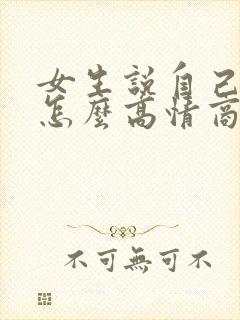 女生說自己
怎麼高情商
不可無可不